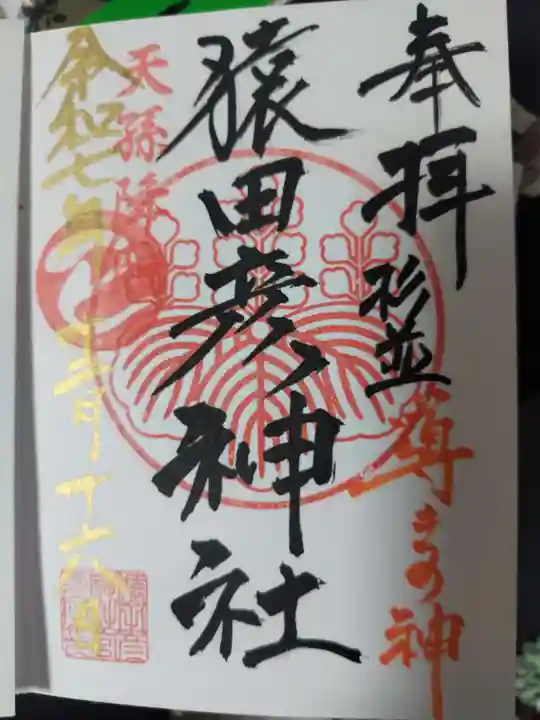 奉拝
杉並
導きの神
猿田彦神社
天孫降臨
令和七年十二月十六日